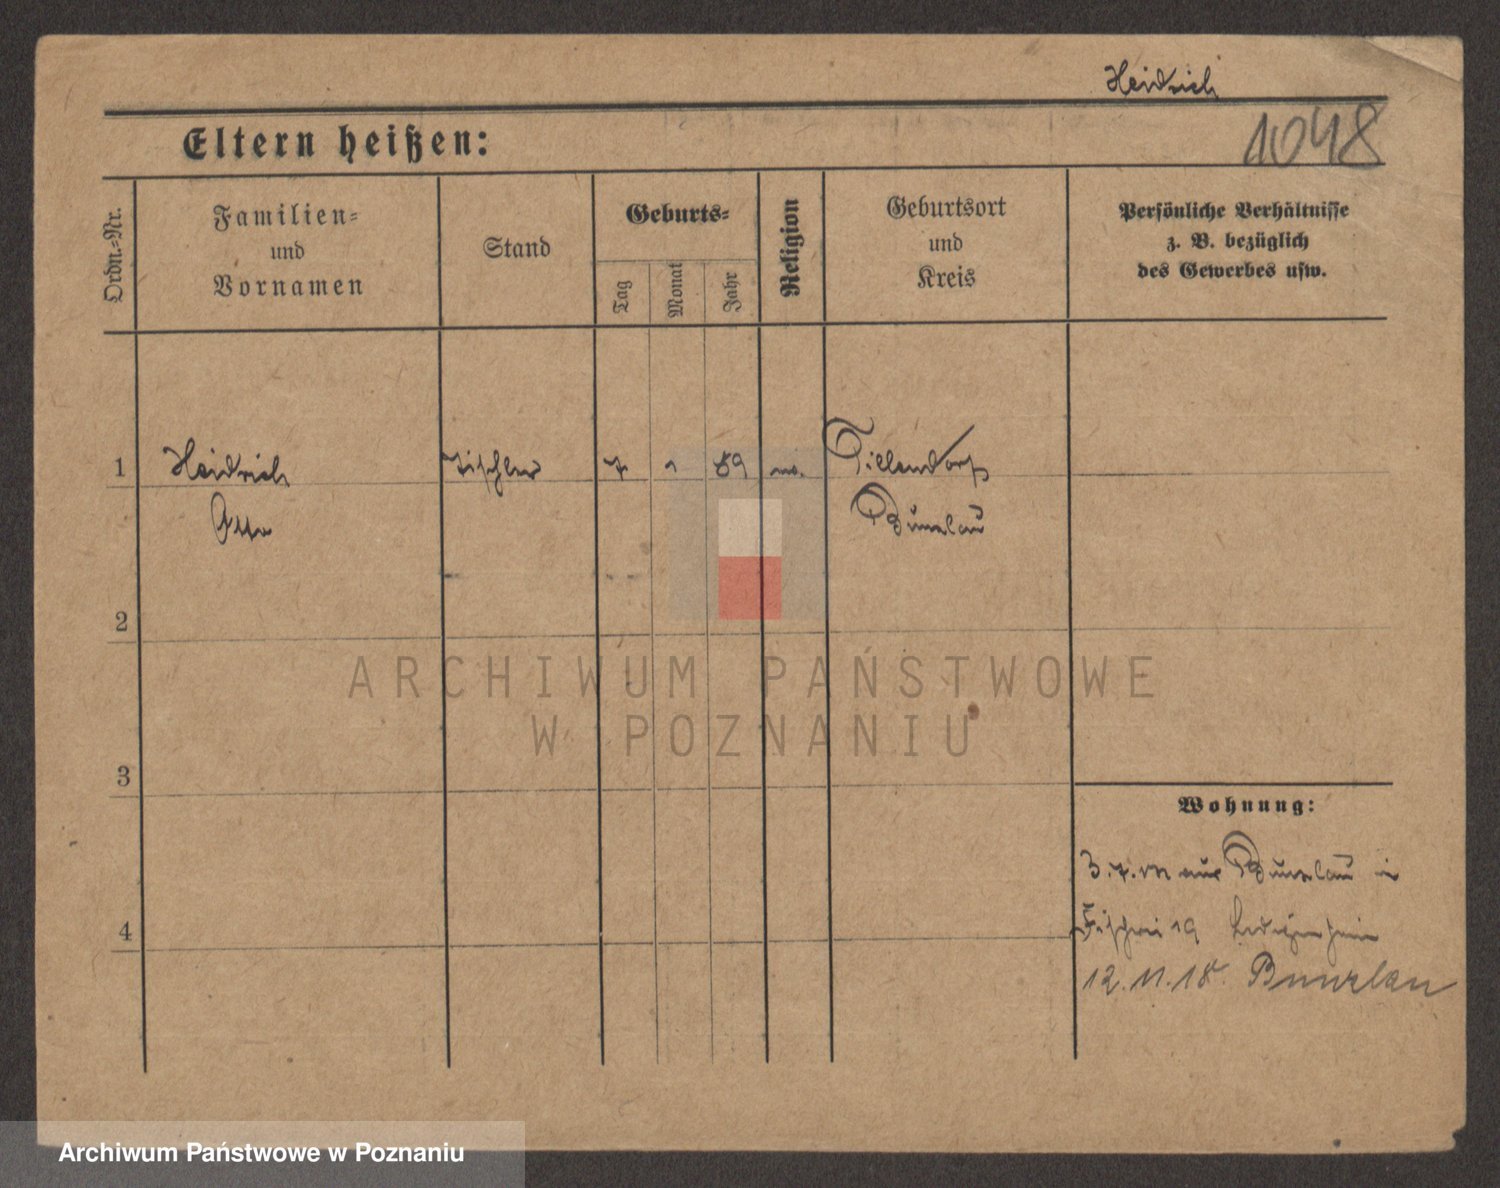 Heidrich
1048
Eltern heißen:
Ordn.-Nr.
Familien-
und
Vornamen
Stand
Geburts-
Tag
Monat
Jahr
Religion
Geburtsort
und
Kreis
Persönliche Verhältnisse
z. B. bezüglich
des Gewerbes usw.
1 Heidrich Tischler 7 1 89 Tillendorf
Otto Bunzlau
2
3
4
ARCHIWUM PAŃSTWOWE
W POZNANIU
Wohnung:
3.7. aus Bunzlau in
Fischerei 19
12.11.18. Bunzlau
Archiwum Państwowe w Poznaniu